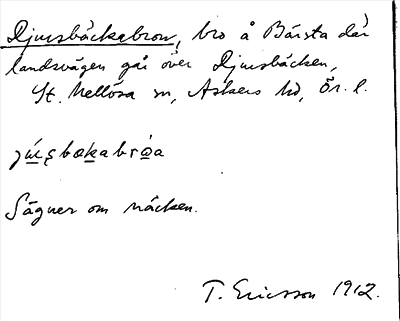 Djursbäckabron, bro å Bärsta där
landsvägen går över Djursbäcken,
St. Mellösa sn, Askers hd, Ör. l.
Sägner om näcken.
T. Ericsson 1912.